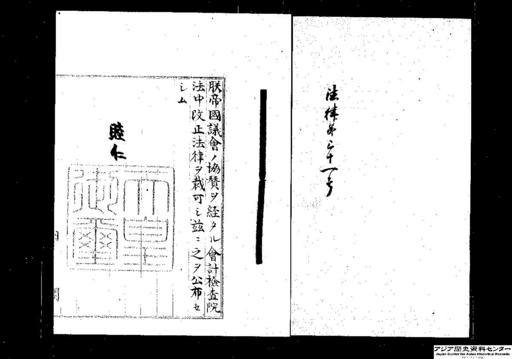 法律第三十一号
朕帝國議會ノ協賛ヲ經タル會計檢査院
法中改正法律ヲ裁可シ茲ニ之ヲ公布セ
シム
睦仁
天皇
御璽
アジア歴史資料センター
Japan Center for Asian Historical Records